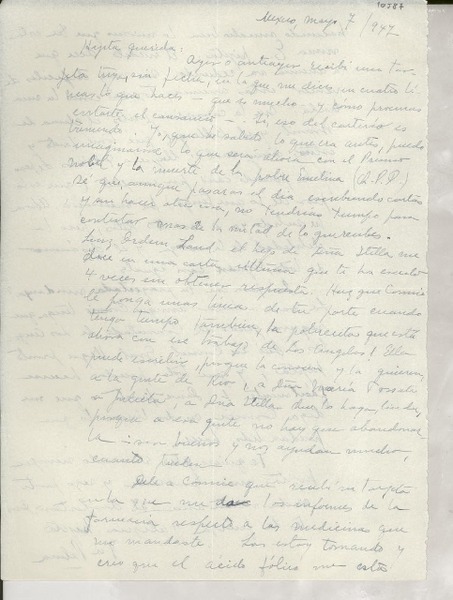 10587
Mexico, mayo 7/947
Hijita querida: Ayer o antiayer recibí una tar-
jeta tuya, sin fecha, en la que me dices en cuatro lí-
neas lo que haces — que es mucho — y cómo procuras
el cansancio — Sí, eso del carterío es
tremendo. Yo, que sé lo que era antes, puedo
imaginarme lo que será ahora con el Premio
Nobel y la muerte de la pobre Emelina (Q.P.D.)
Sé que, aunque pasaras el día escribiendo cartas
y sin hacer otra cosa, no tendrías tiempo para
contestar mas de la mitad de lo que recibes.
Land el de Doña Stella me
dice en una carta última que te ha escrito
4 veces sin obtener respuesta. Haz que Connie
le ponga unas líneas de tu parte cuando
tenga tiempo, también, la pobrecita que está
ahora con ese trabajo de Los Angeles! Ella
puede escribir, porque la conocen y la quieren,
a la gente de Rio, a Dña María
o Palcita, a Dña Stella. Que lo haga, linda,
porque a esa gente no hay que abandonar-
la son buenos y nos ayudan mucho,
cuanto pueden —
Dile a Connie que recibí su tarjeta
en la que me da los informes de la
farmacia respecto a las medicinas que
me mandaste. Las estoy tomando y
creo que el ácido fólico me está